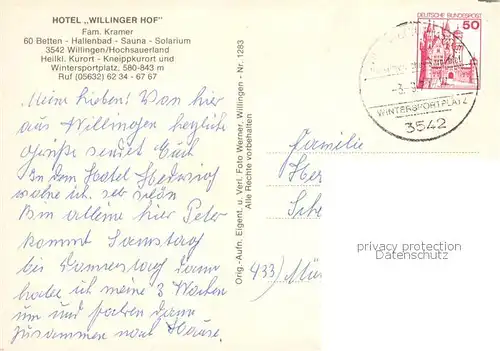 HOTEL „WILLINGER HOF"
Fam. Kramer
60 Betten - Hallenbad - Sauna - Solarium
3542 Willingen/Hochsauerland
Heilkl. Kurort - Kneippkurort und
Wintersportplatz, 580-843 m
Ruf (05632) 62 34 - 67 67
Meine Lieben! Von hier
aus Willingen herzliche
Grüße sendet Euch
In dem Hotel Hedwig
wohne ich. sehr schön
Bin alleine hier Peter
kommt Samstag
bis Donnerstag dann
habe ich meine 3 Wochen
um und fahren dann
zusammen nach Hause.
Orig.-Aufn. Eigent. u. Verl. Foto Werner, Willingen - Nr. 1283
Alle Rechte vorbehalten
DEUTSCHE BUNDESPOST
50
WINTERSPORTPLATZ
3542
Familie
Her
Sche
433) Mü
privacy protection
Datenschutz